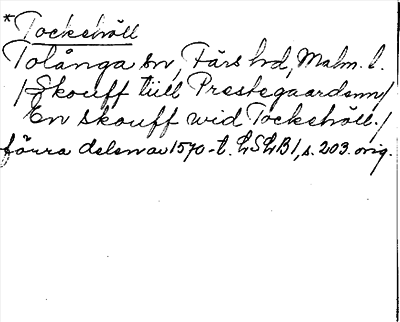 *Tockshöll
Tolånga sn, Färs hd, Malm. l.
/Skouff tiill Prestegaardenn/
En skouff wid Tockshöll./
förra delen av 1570-t. LSLB1, s. 203. orig.